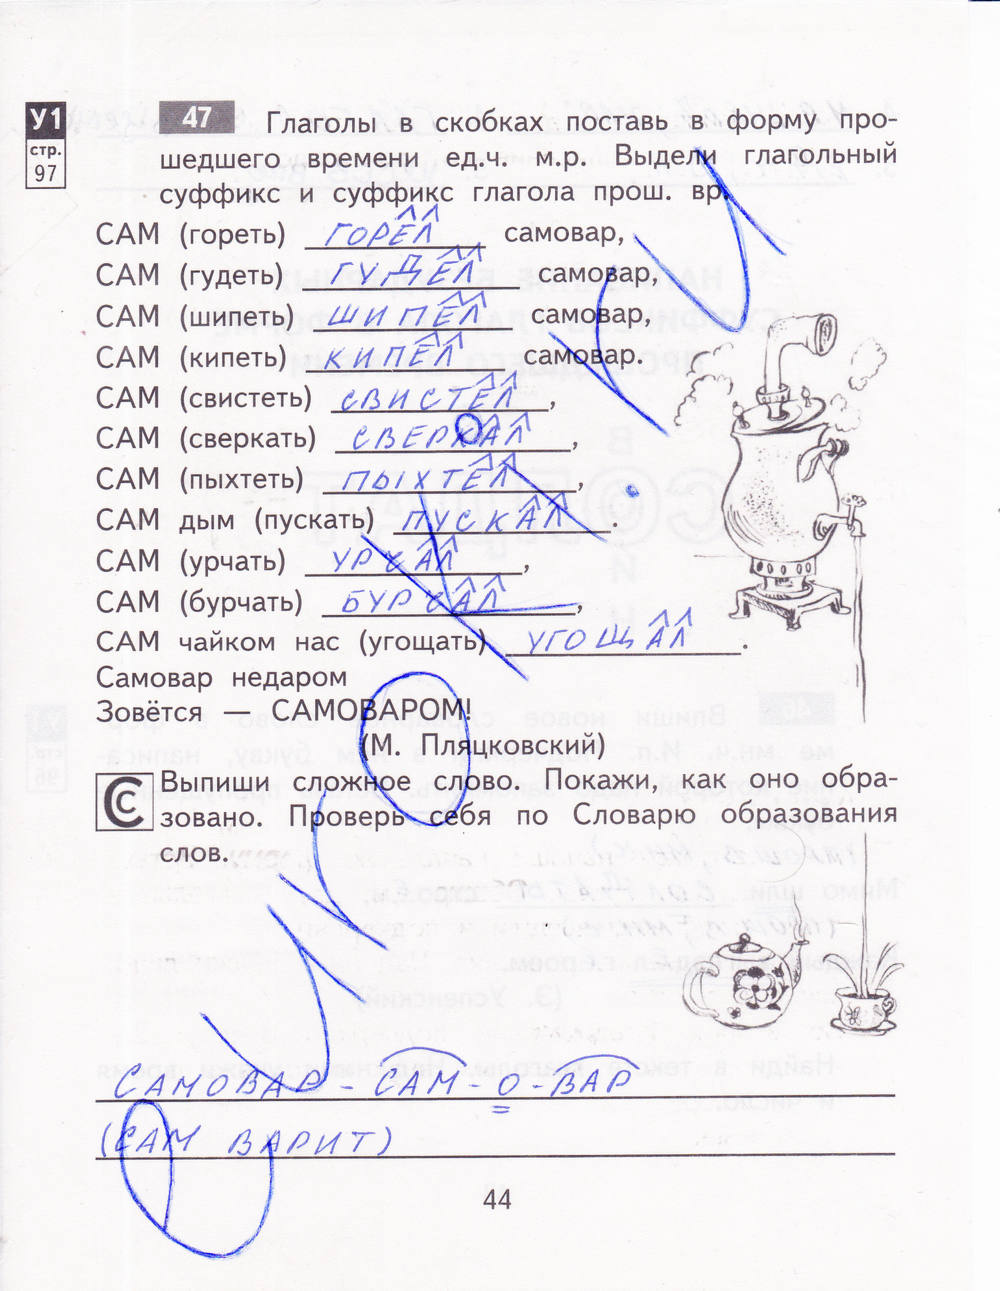 У1
стр.
97
47 Глаголы в скобках поставь в форму про-
шедшего времени ед.ч. м.р. Выдели глагольный
суффикс и суффикс глагола прош. вр.
САМ (гореть) ГОРЕЛ самовар,
САМ (гудеть) ГУДЕЛ самовар,
САМ (шипеть) ШИПЕЛ самовар,
САМ (кипеть) КИПЕЛ самовар.
САМ (свистеть) СВИСТЕЛ,
САМ (сверкать) СВЕРКАЛ,
САМ (пыхтеть) ПЫХТЕЛ,
САМ дым (пускать) ПУСКАЛ.
САМ (урчать) УРЧАЛ,
САМ (бурчать) БУРЧАЛ,
САМ чайком нас (угощать) УГОЩАЛ.
Самовар недаром
Зовётся — САМОВАРОМ!
(М. Пляцковский)
С Выпиши сложное слово. Покажи, как оно обра-
зовано. Проверь себя по Словарю образования
слов.
САМОВАР - САМ - О - ВАР
(САМ ВАРИТ)
44